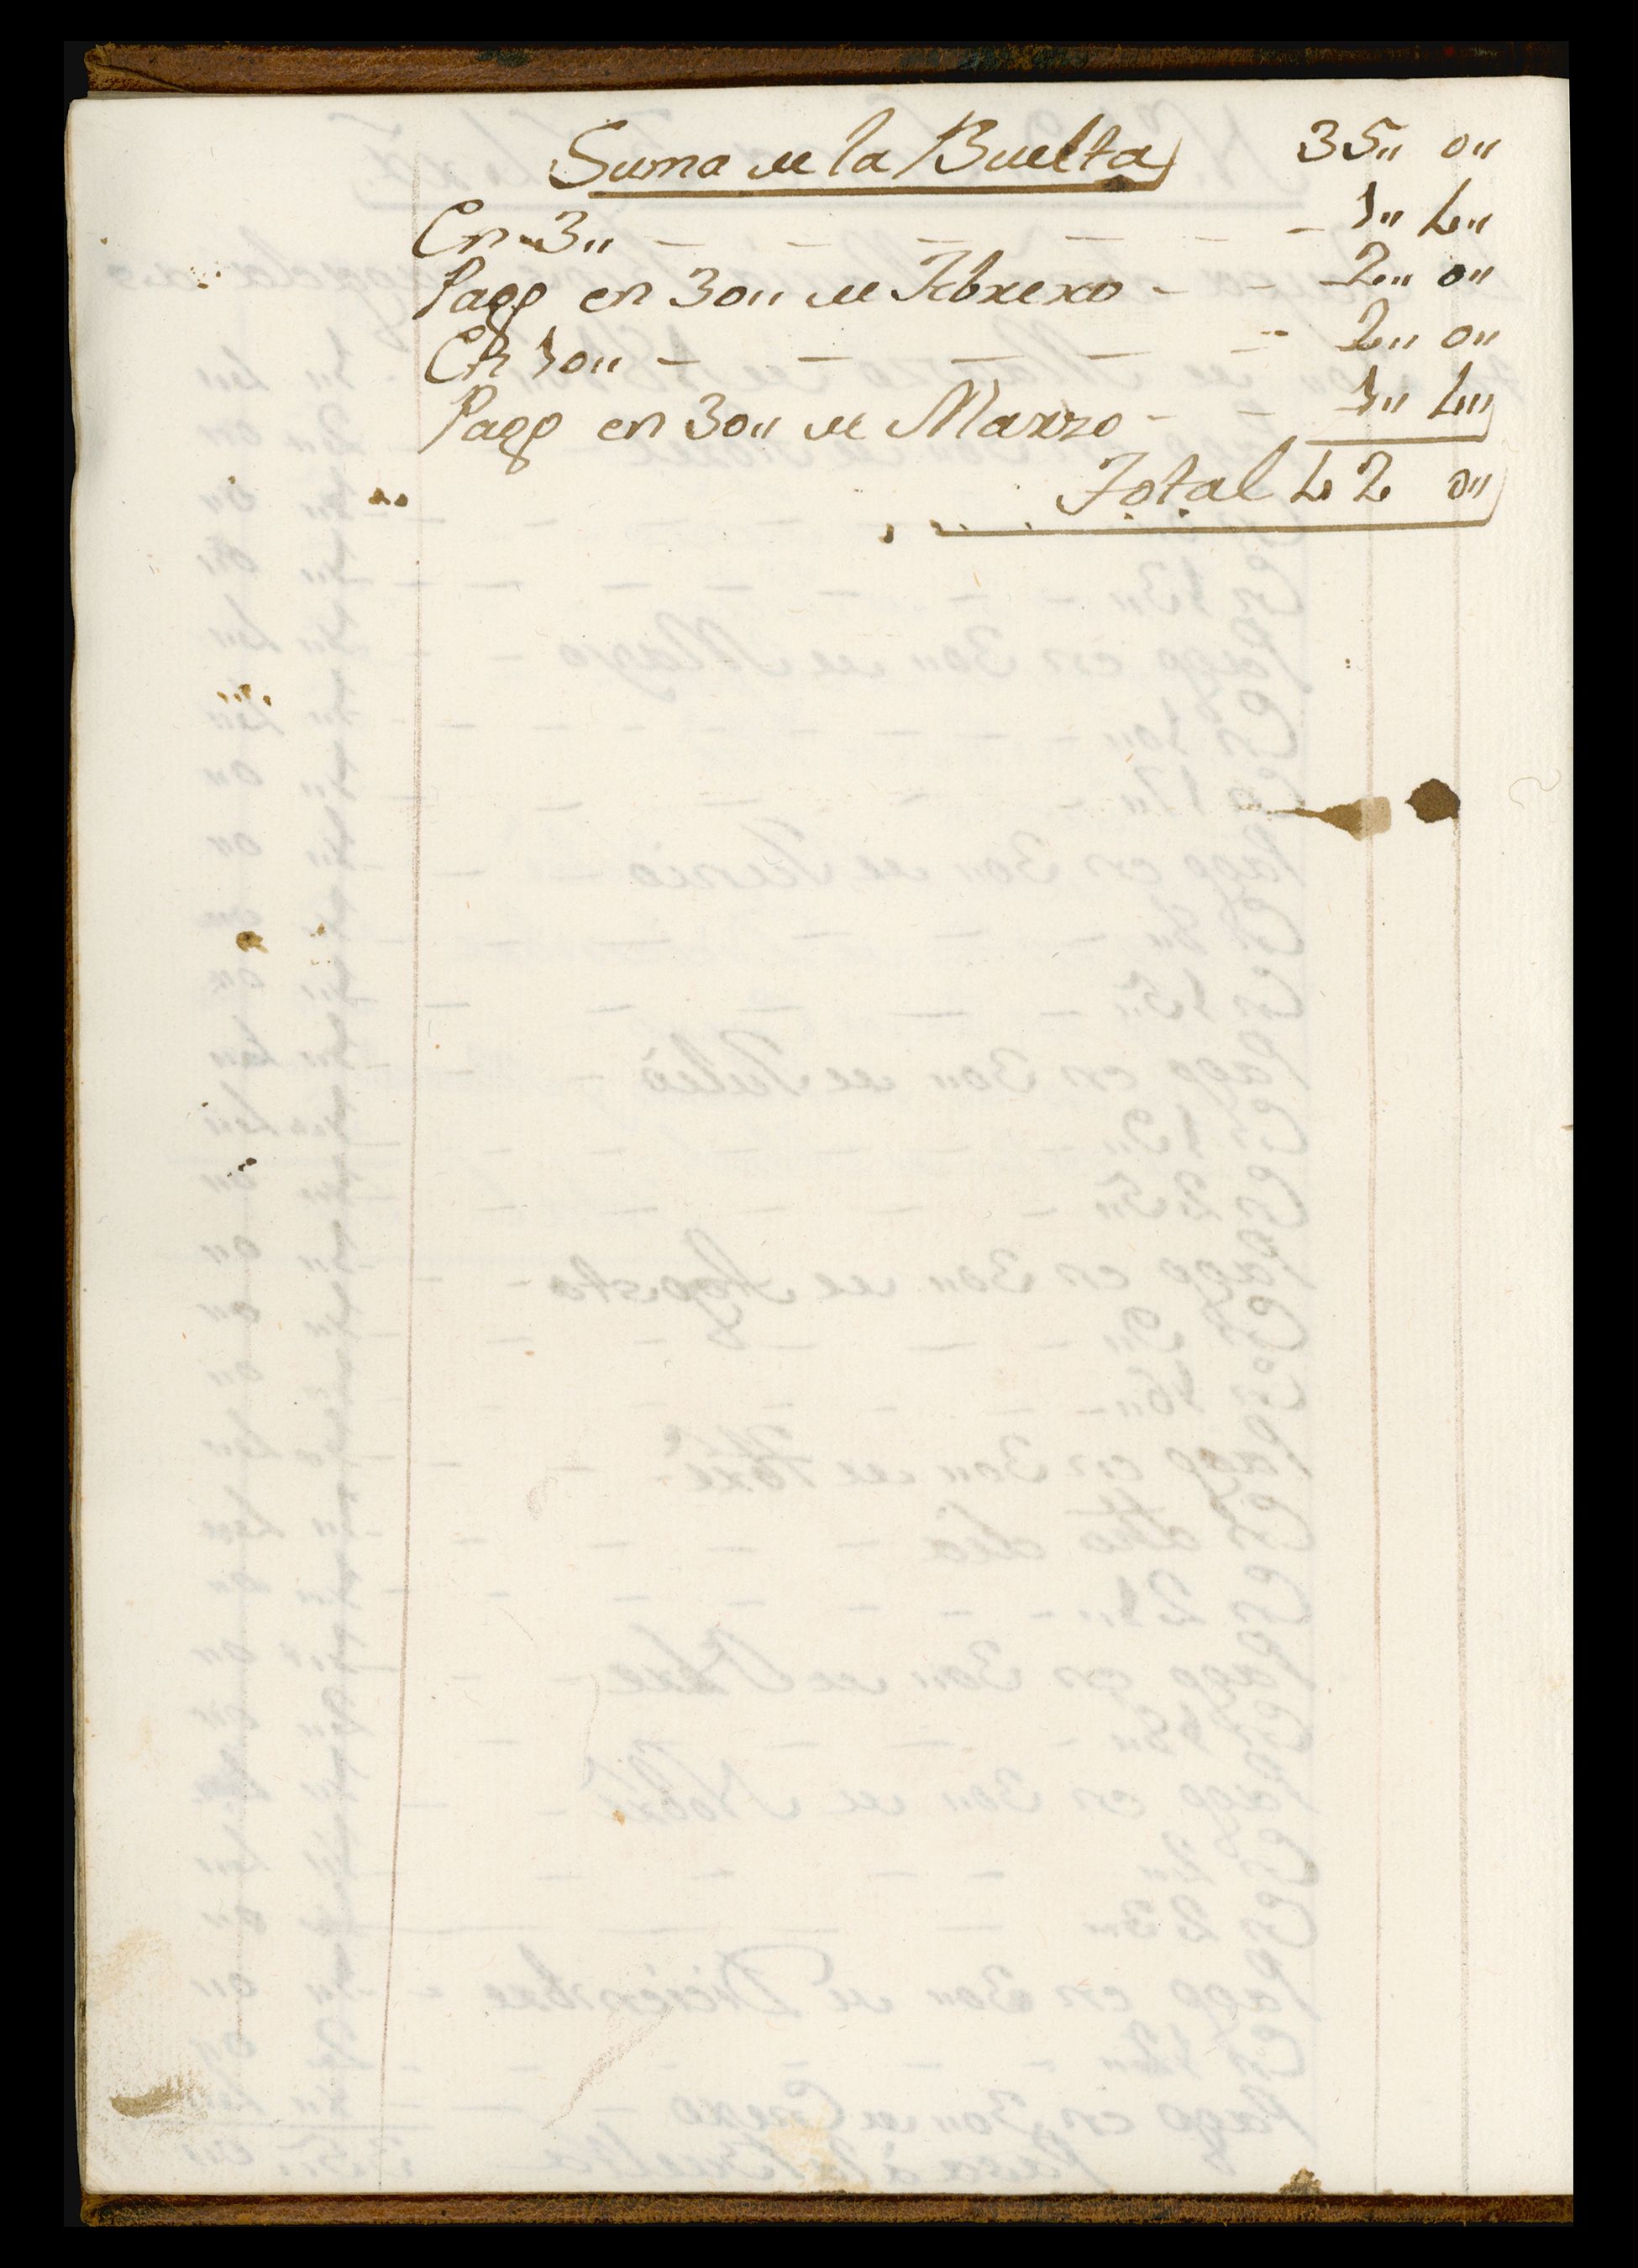 Suma de la Buelta 35,, 0,,
En 3,, - - - - - - 1,, 4,,
Pago en 30,, de Febrero - - 2,, 0,,
En 10,, - - - - - - 2,, 0,,
Pago en 30,, de Marzo - - 1,, 4,,
Total 42 0,,